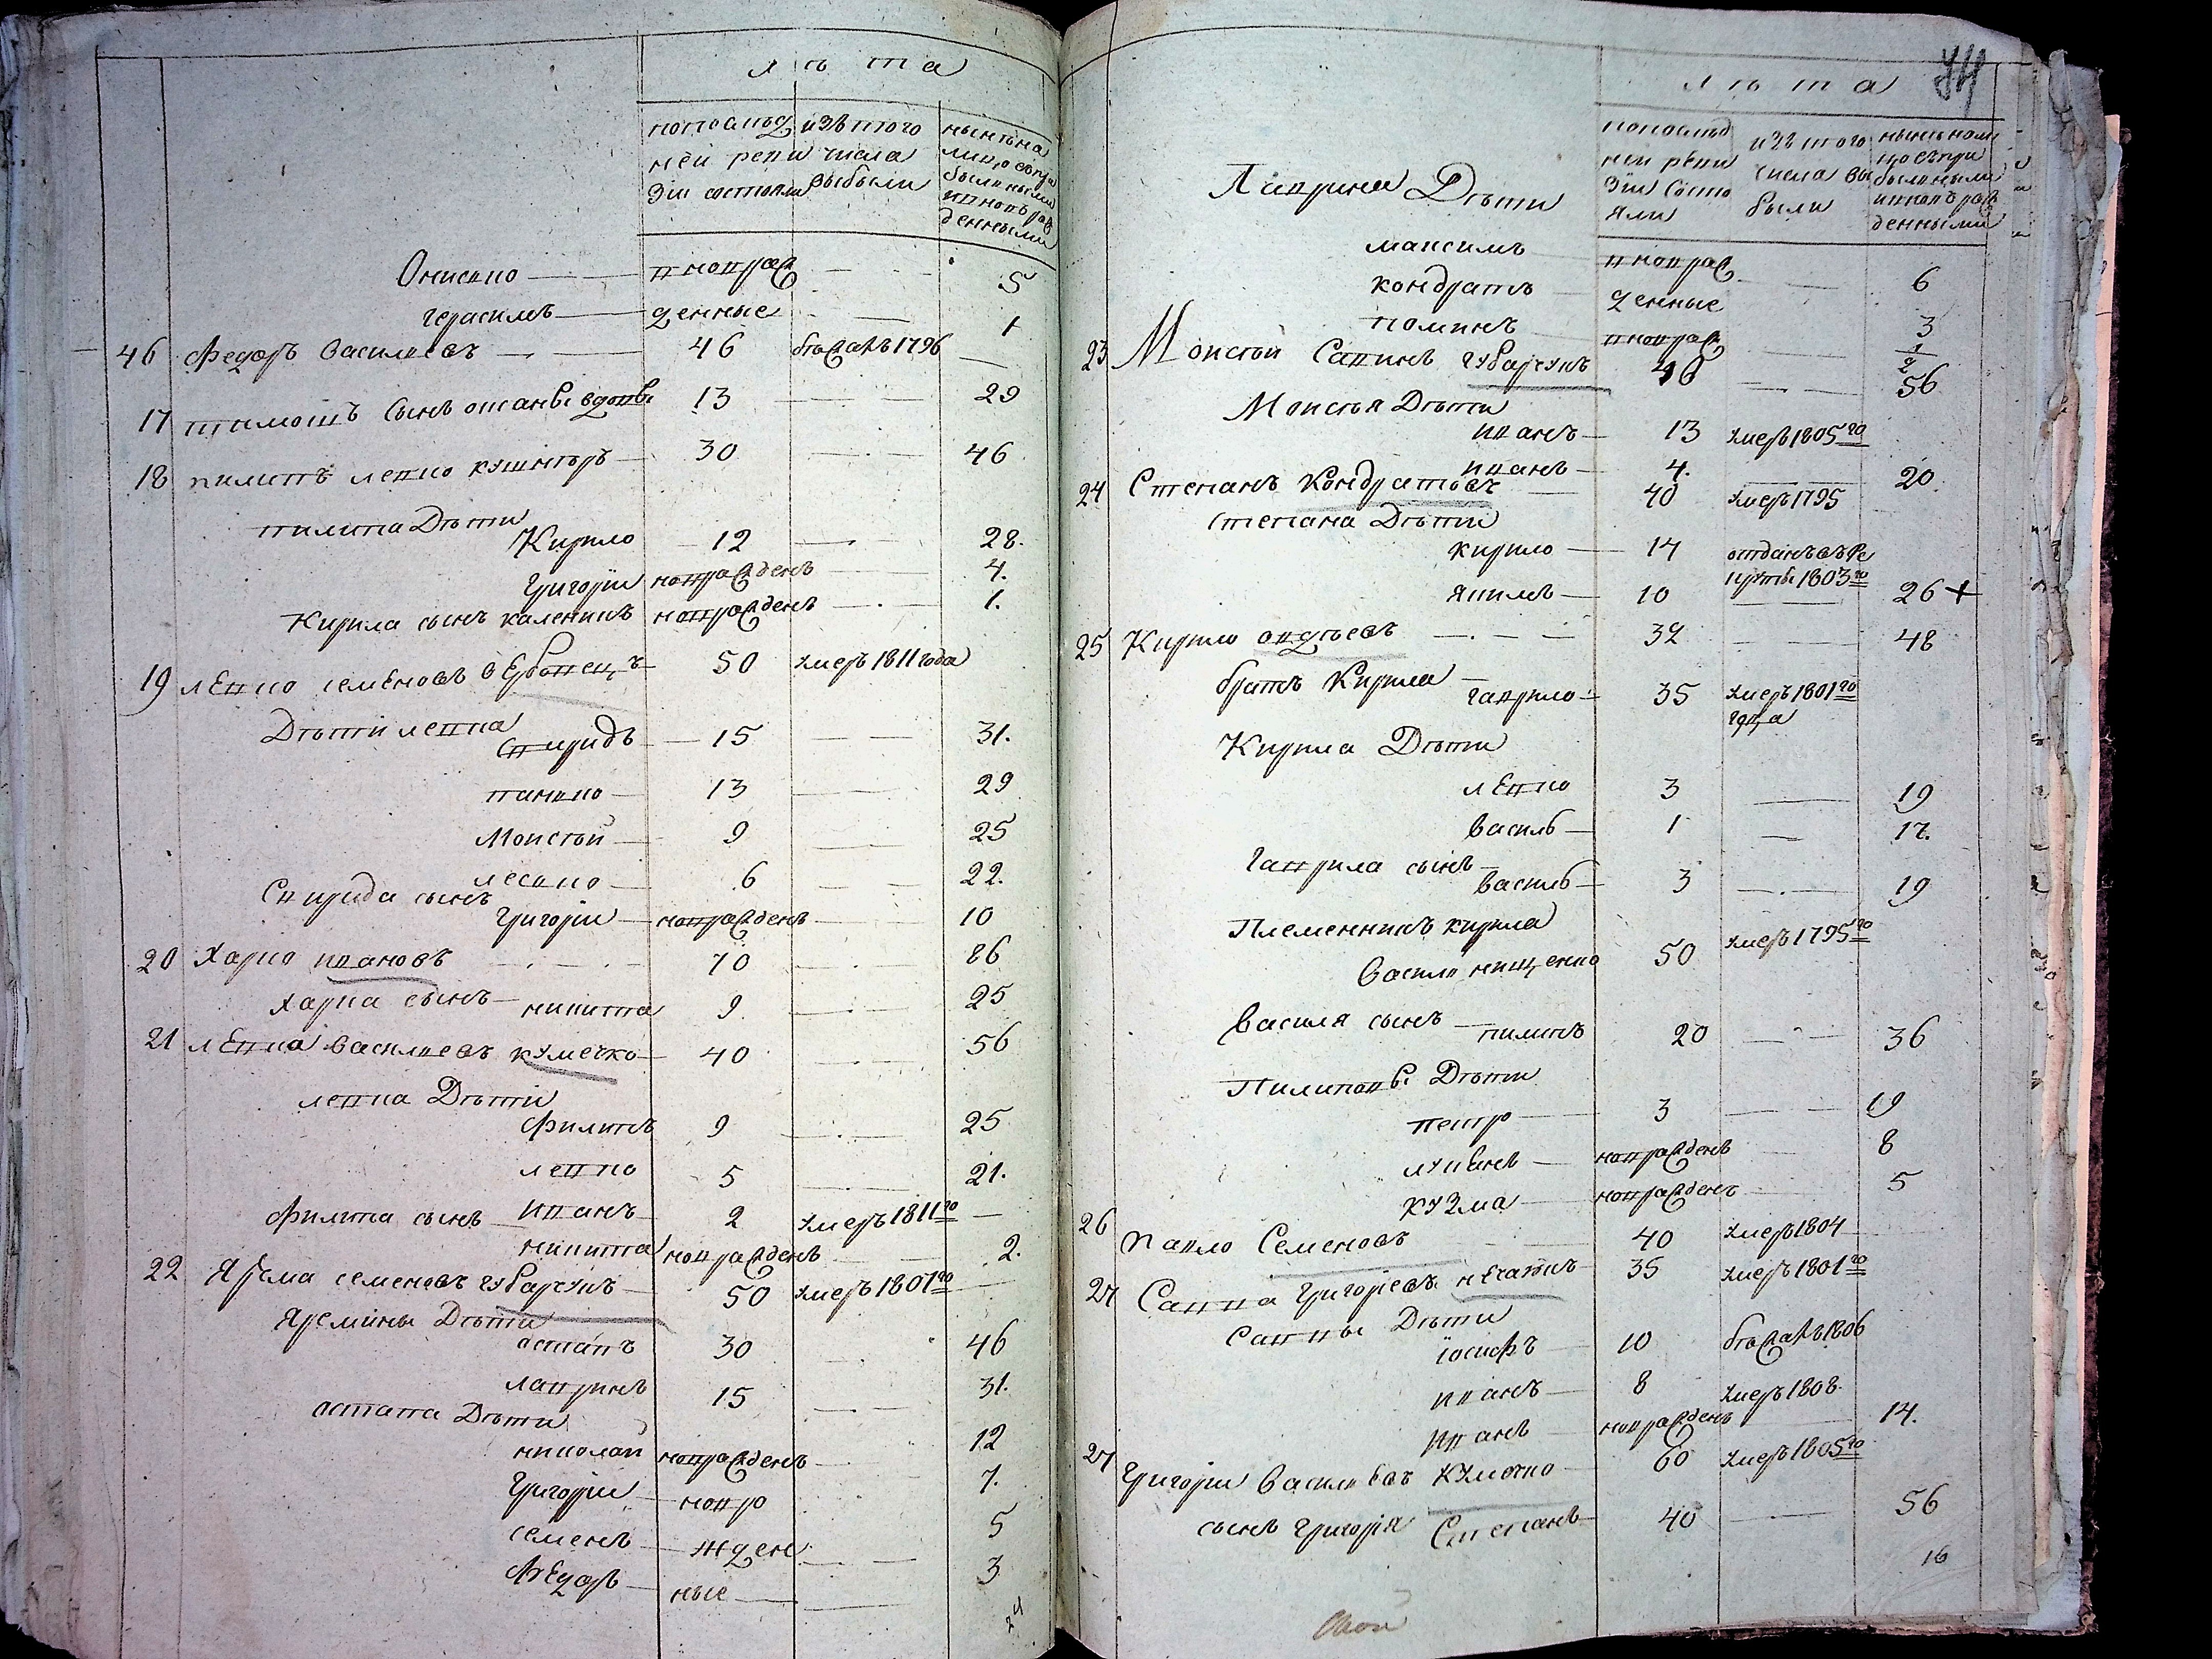 лѣта
попослѣд
ней реви
зіи состояло
изъ того
числа
выбыли
нынѣ на
лицо съпри
былыми
и новорож
денными
Онисько — новорож — 5
герасимъ — денные — 1
46 Федоръ Василиевъ — 46 бѣжалъ 1796 —
17 тимошъ Сынъ оксаны вдовы 13 — 29
18 пилипъ левко кушнѣръ 30 — 46
пилипа Дѣти
Кирило 12 — 28.
Григорiи новорожденъ — 4.
Кирила сынъ каленикъ новорожденъ — 1.
19 лЕвко семЕновъ вЕрбовецъ — 50 умеръ 1811 года
Дѣти левка
Спиридъ — 15 — 31.
панько — 13 — 29
Моисѣй — 9 — 25
лесько — 6 — 22.
Спирида сынъ
Григорiи — новорожденъ — 10
20 Харко ивановъ 70 — 86
харка сынъ — никита 9. — 25
21 лЕвко василиевъ кумечко — 40 — 56
левка Дѣти
Филипъ 9 — 25
левко 5 — 21.
иванъ 2 умеръ 1811го —
Филипа сынъ никита новорожденъ — 2.
22 Ярема семеновъ губарчукъ — 50 умеръ 1801го —
Яремины Дѣти
остапъ 30 — 46
лавринъ 15 — 31.
остапа Дѣти
николай новорожденъ — 12
Григорiи — новоро — 7.
семенъ — жден — 5
ФЕдоръ — ные — 3
24
лѣта
попослѣд
ней реви
зіи состо
яли
изъ того
числа вы
были
нынѣ нали
цо съпри
былыми
и новорож
денными
Лаврина Дѣти
максимъ новорож — 6
кондратъ денные 3
поминъ новорож — 1/2
23 Моисѣй Савинъ губарчукъ 40 — 56
Моисѣя Дѣти
иванъ — 13 умеръ 1805го
иванъ — 4. — 20
24 Степанъ Кондратовъ 40 умеръ 1795
степана Дѣти
кирило — 14 отданъ въ ре
круты 1803го
якимъ — 10 — 26 +
25 Кирило авдѣевъ — 32 — 48
братъ Кирила — гаврило — 35 умеръ 1801го
года
Кирила Дѣти
лЕвко 3 — 19
василь — 1 — 17.
гаврила сынъ — василь — 3 — 19
Племенникъ кирила
василь нищенко 50 умеръ 1795го
василя сынъ — пилипъ 20 — 36
Пилиповы Дѣти
петро — 3 — 19
лукянъ — новорожденъ — 8
кузма — новорожденъ — 5
26 павло Семеновъ 40 умеръ 1804
27 Савва Григорiевъ 35 умеръ 1801го
саввы Дѣти
iосифъ 10 бѣжалъ 1806
иванъ — 8 умеръ 1808.
иванъ новорожденъ — 14.
27 Григорiи Василиевъ кумечко 60 умеръ 1805го
сынъ григорiя Степанъ — 40 — 56
16